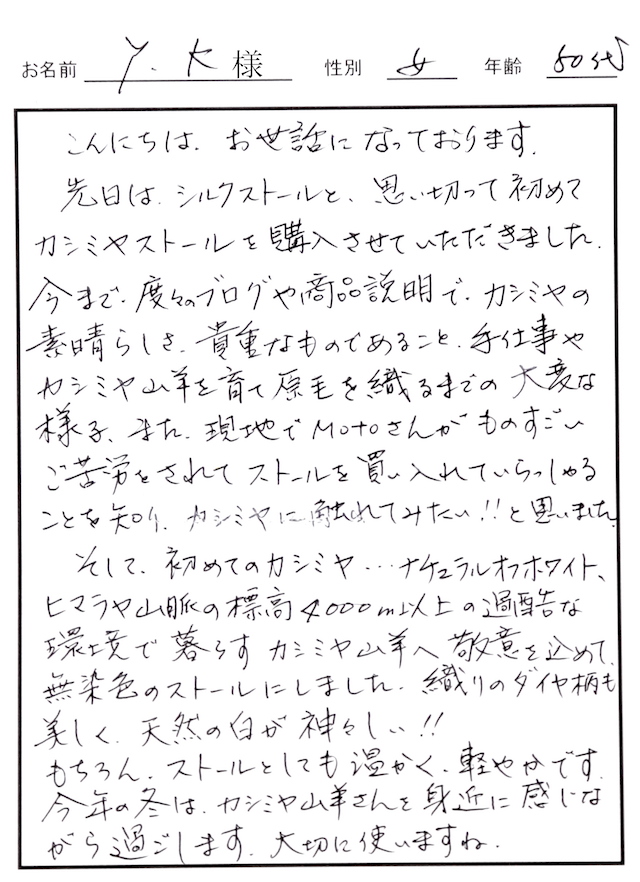 お名前 Y.K 様 性別 女 年齢 50代
こんにちは。お世話になっております。
先日は、シルクストールと、思い切って初めて
カシミヤストールを購入させていただきました。
今まで、度々のブログや商品説明で、カシミヤの
素晴らしさ、貴重なものであること、手仕事や
カシミヤ山羊を育て原毛を織るまでの大変な
様子、また、現地でMotoさんがものすごい
ご苦労をされてストールを買い入れていらっしゃる
ことを知り、カシミヤに触れてみたい!!と思いました。
そして、初めてのカシミヤ…ナチュラルオフホワイト、
ヒマラヤ山脈の標高4000m以上の過酷な
環境で暮らすカシミヤ山羊へ敬意を込めて、
無染色のストールにしました。織りのダイヤ柄も
美しく、天然の白が神々しい!!
もちろん、ストールとしても温かく、軽やかです。
今年の冬は、カシミヤ山羊さんを身近に感じな
がら過ごします。大切に使いますね。